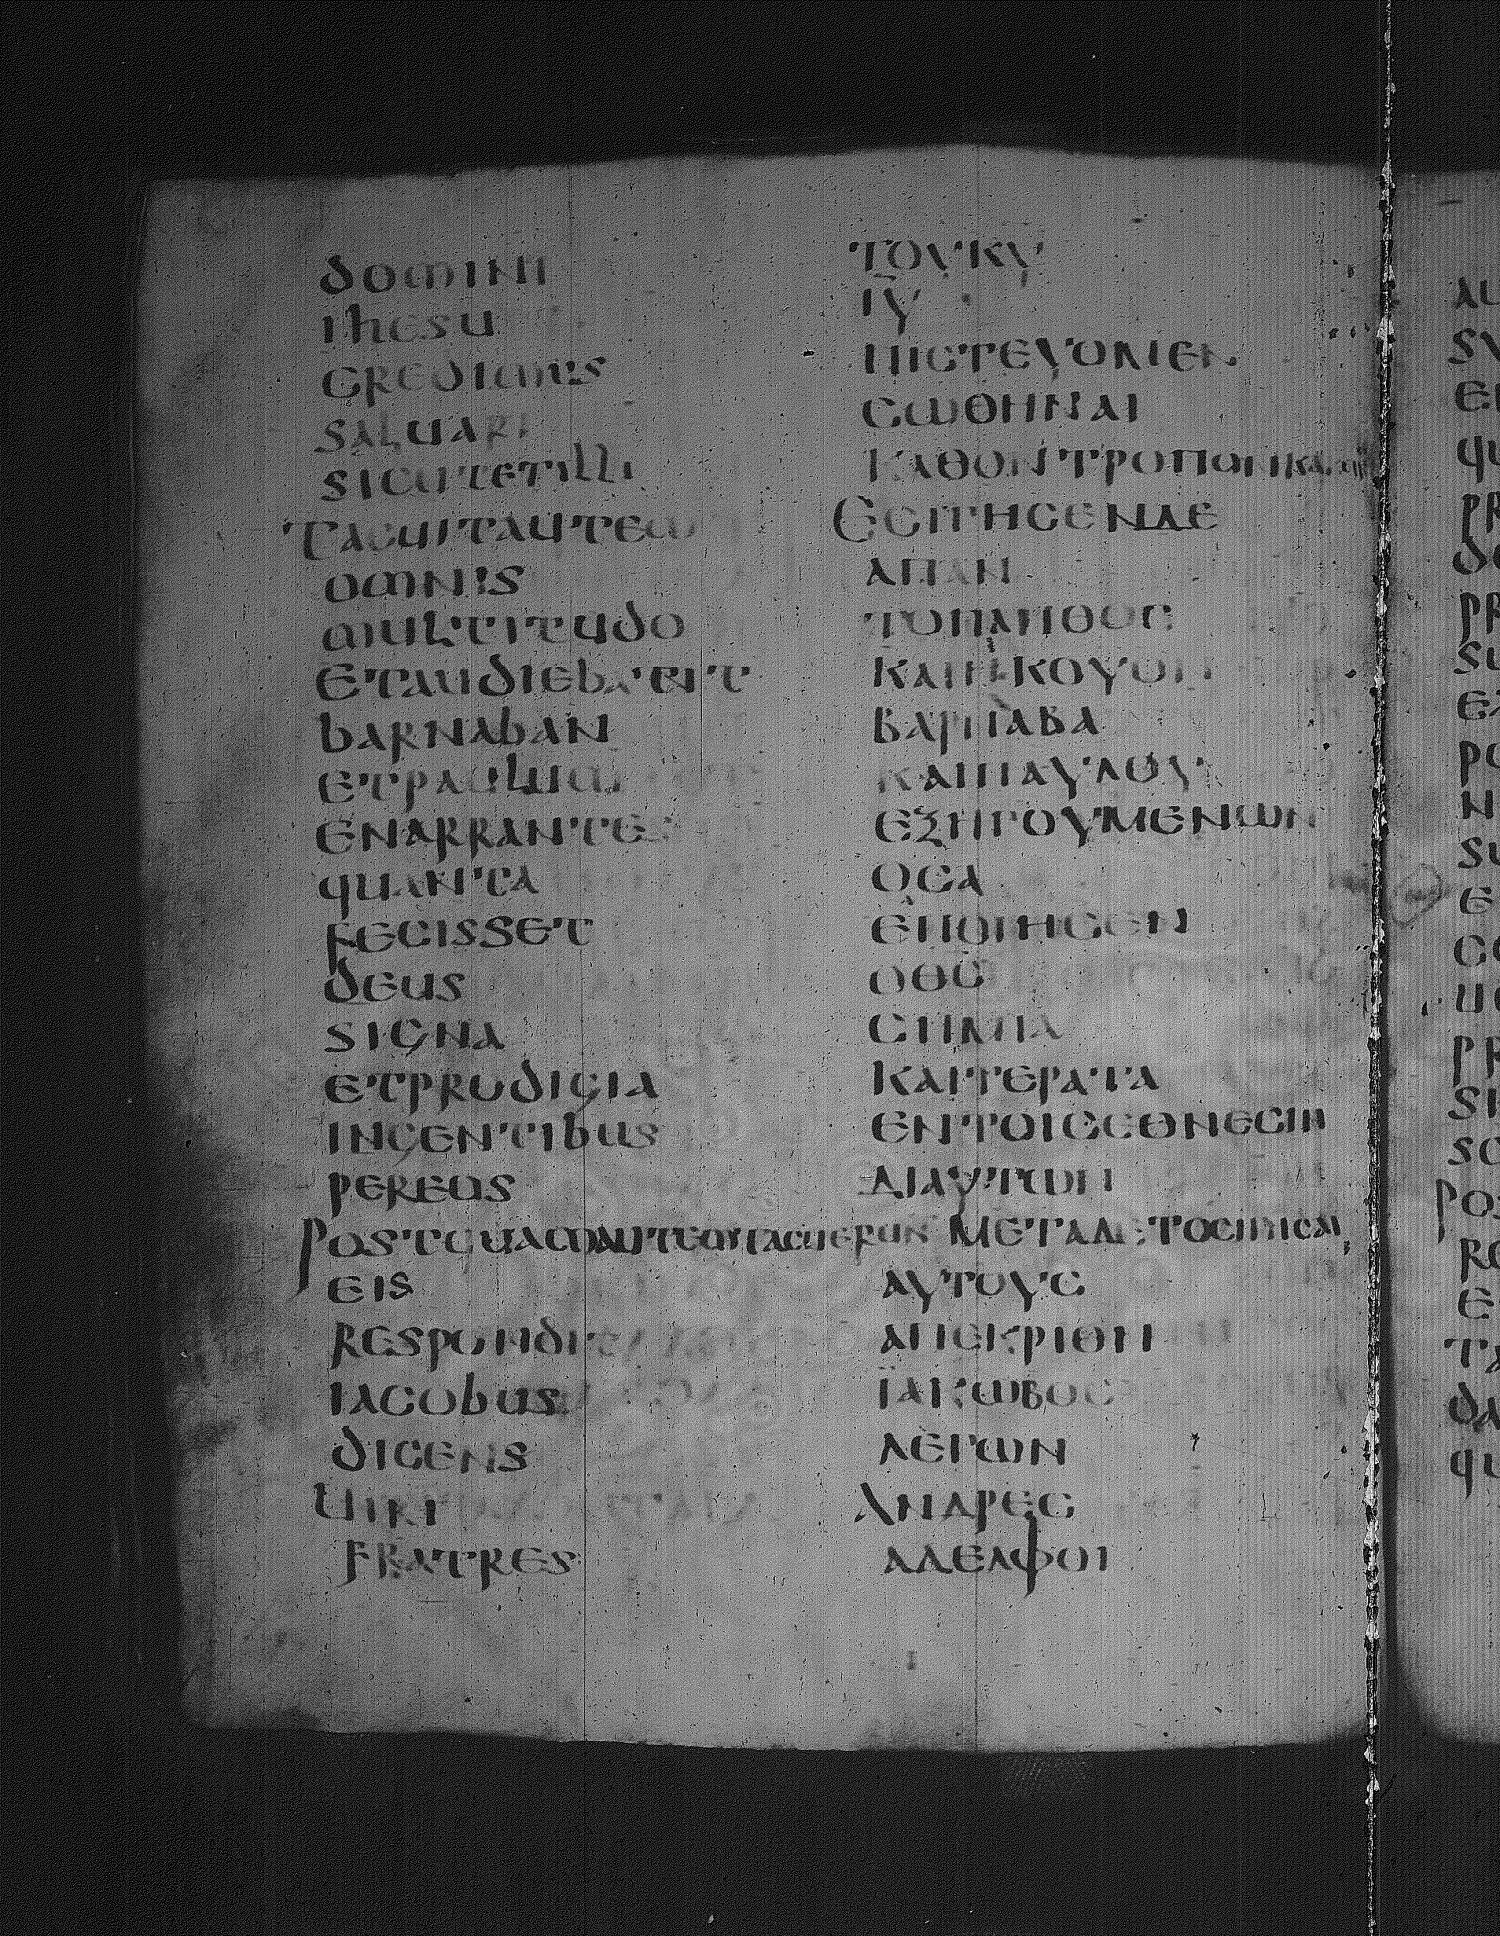 domini
ihesu
credimus
saluari
sicutetilli
Tacuitautem
omnis
multitudo
etaudiebant
barnaban
etpaulum
enarrantes
quanta
fecisset
deus
signa
etprodigia
ingentibus
pereos
Postquamautemtacuerunt
eis
respondit
iacobus
dicens
Uiri
fratres
ΤΟΥΚΥ
ΙΥ
ΠΙϹΤΕΥΟΜΕΝ
ϹΩΘΗΝΑΙ
ΕϹΙΓΗϹΕΝΔΕ
ΑΠΑΝ
ΤΟΠΛΗΘΟϹ
ΚΑΙΗΚΟΥΟΝ
ΒΑΡΝΑΒΑ
ΚΑΙΠΑΥΛΟΥ
ΕΞΗΓΟΥΜΕΝΩΝ
ΟϹΑ
ΕΠΟΙΗϹΕΝ
ΟΘϹ
ϹΗΜΙΑ
ΚΑΙΤΕΡΑΤΑ
ΕΝΤΟΙϹΕΘΝΕϹΙΝ
ΔΙΑΥΤΩΝ
ΜΕΤΑΔΕΤΟϹΙΓΗϹΑΙ
ΑΥΤΟΥϹ
ΑΠΕΚΡΙΘΗ
ΪΑΚΩΒΟϹ
ΛΕΓΩΝ
ΑΝΔΡΕϹ
ΑΔΕΛΦΟΙ